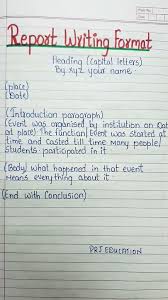 Report Writing Format
Heading (capital letters)
By xyz your name
(place)
(Date)
(Introduction paragraph)
(Event was organised by institution on Dat
at place) The function/Event was started at
time and casted till time many people/
students participated in it
(Body) what happened in that event
means everything about it
(End with Conclusion)
DRJ EDUCATION